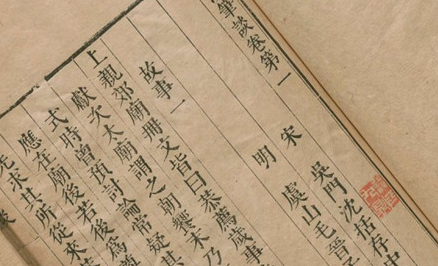 筆談卷第一
宋 吳門沈括存中
明 虞山毛晉
故事一
上親郊廟冊文皆曰恭薦歲事
獻次太廟謂之朝饗末乃
式時曾預討論常疑其
應在廟後若後為
无求其所從來